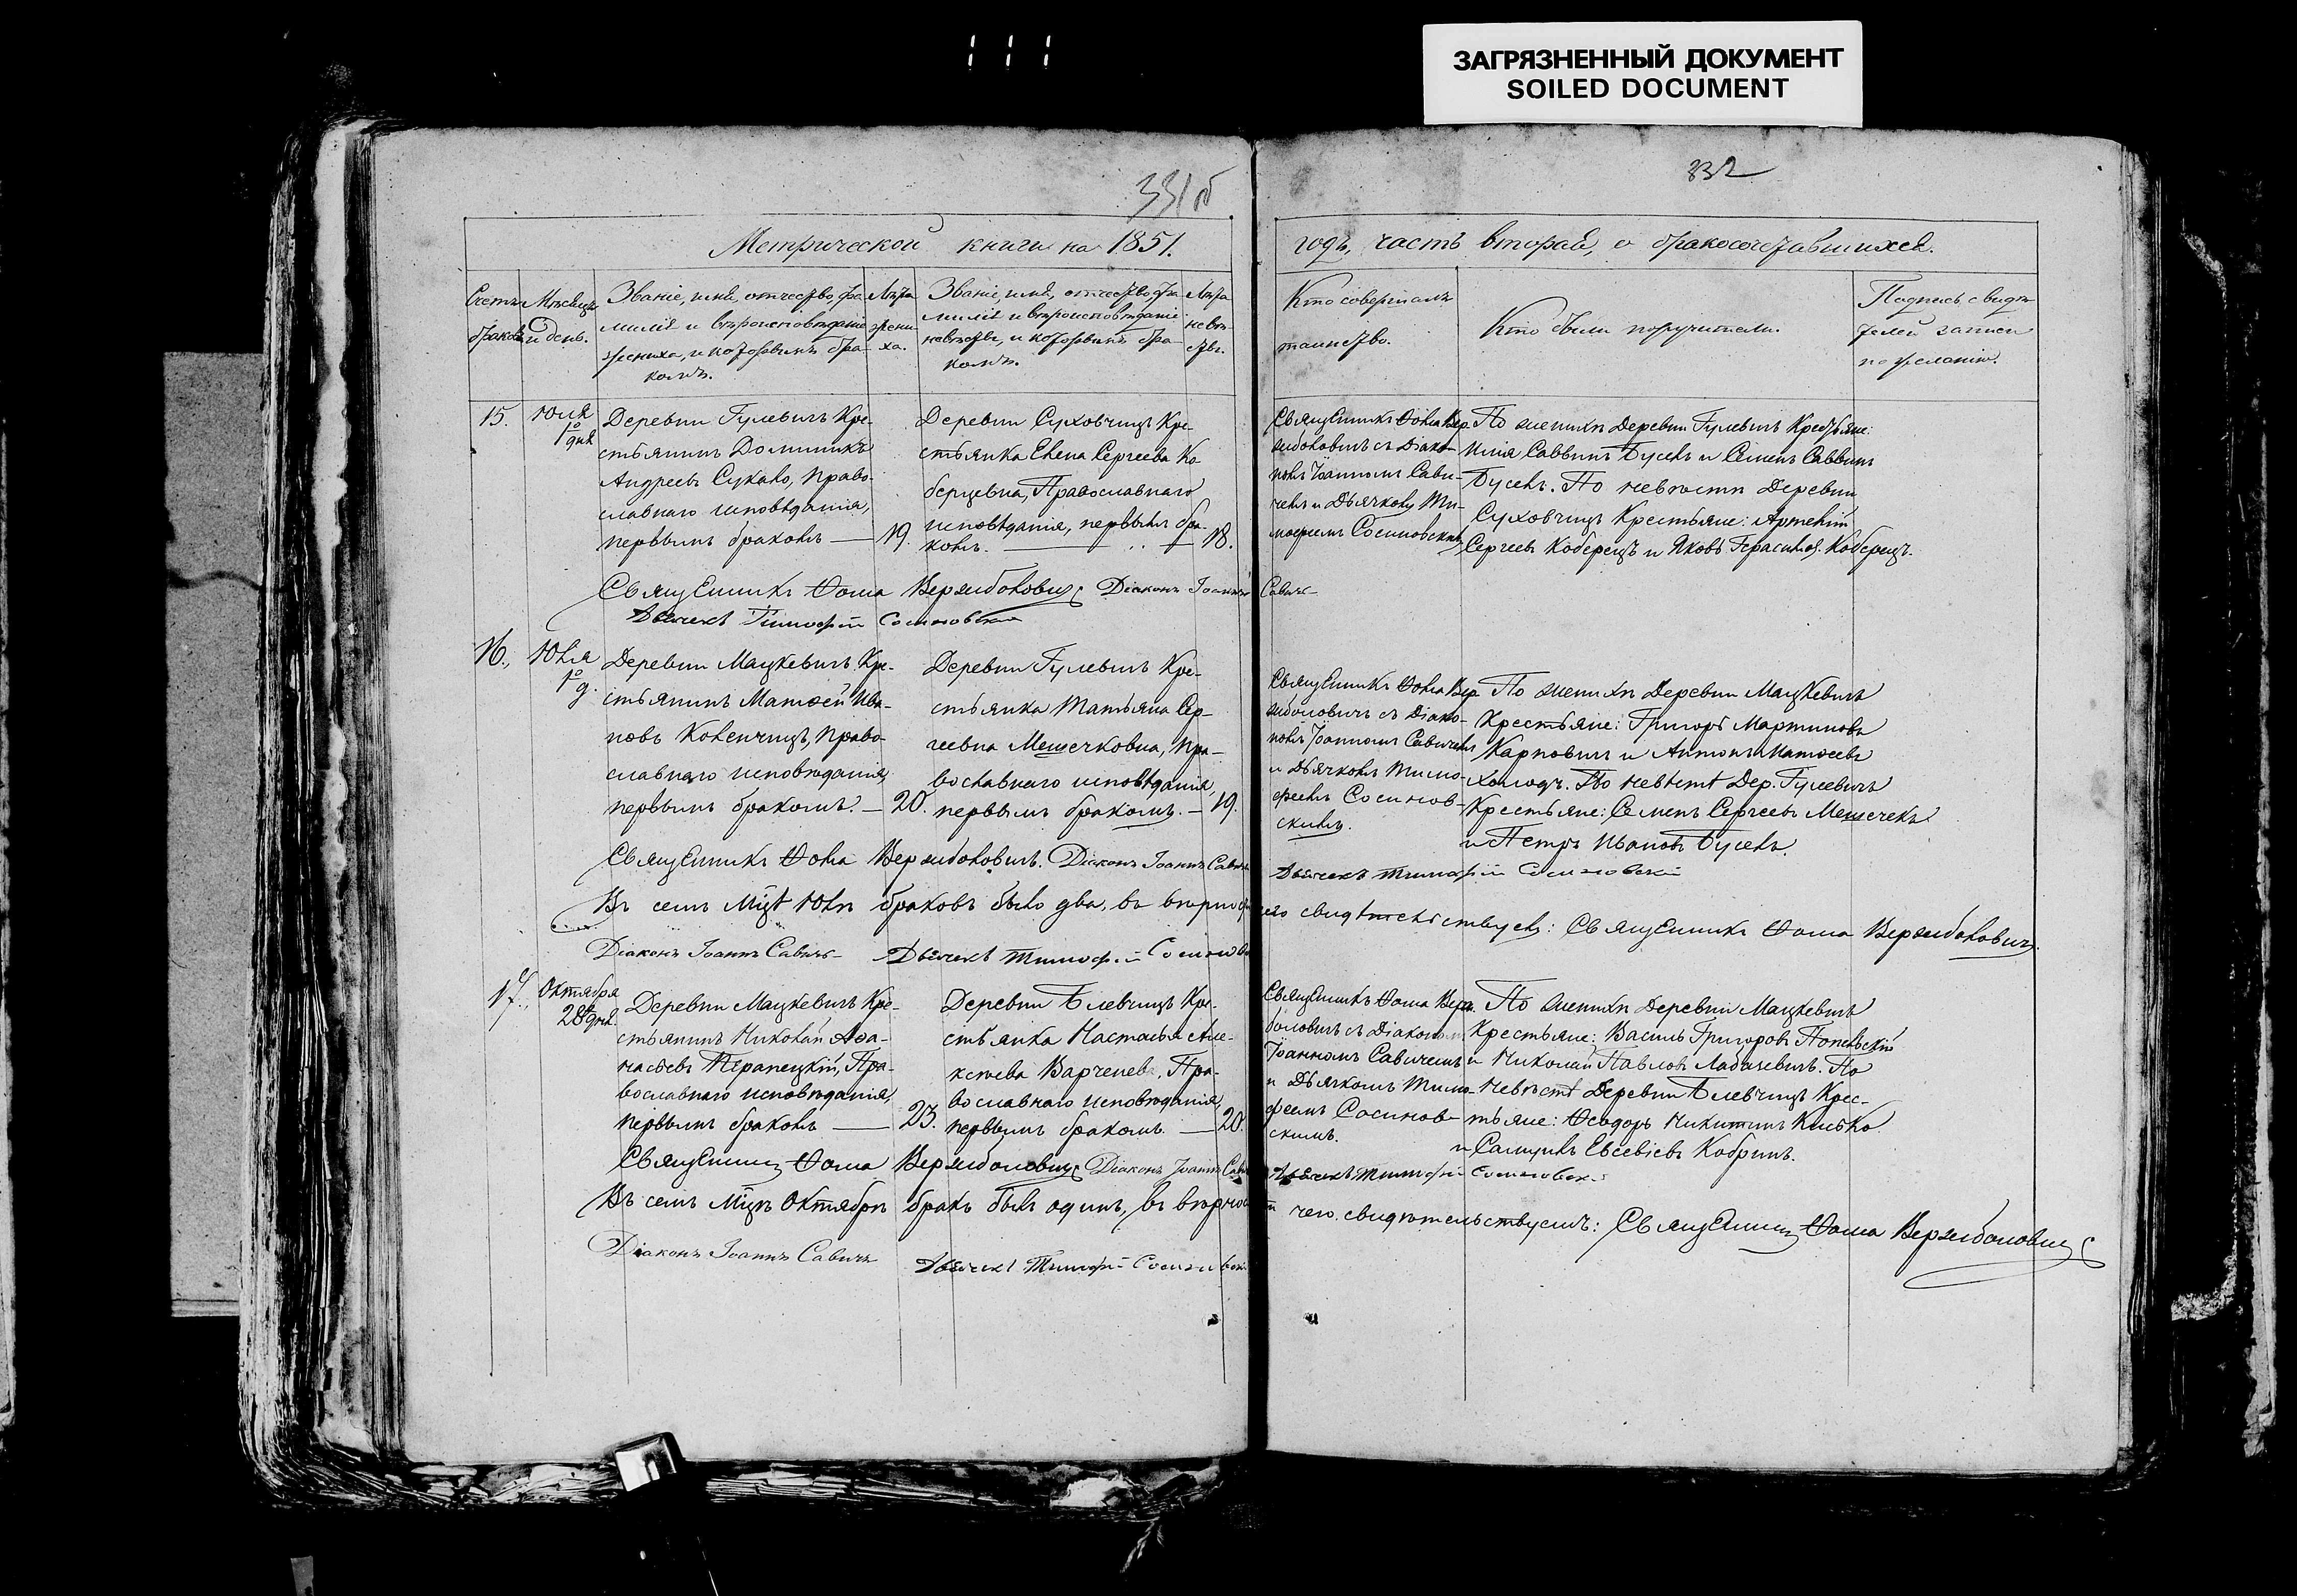 ЗАГРЯЗНЕННЫЙ ДОКУМЕНТ
SOILED DOCUMENT
331об
332
Метрической книги на 1851.
годъ, часть вторая, о бракосочетавшихся.
Счетъ браковъ.
Мѣсяцъ и день.
Званіе, имя, отчество, фа-
милія и вѣроисповѣданіе
жениха, и которымъ бра-
комъ.
Лѣта
жени-
ха.
Званіе, имя, отчество, фа-
милія и вѣроисповѣданіе
невѣсты, и которымъ бра-
комъ.
Лѣта
невѣ-
сты.
Кто совершалъ
таинство.
Кто были поручители.
Подпись свидѣ-
телей записи
по желанію.
15.
Юля
1го
дня
Деревни Гулевичъ Кре-
стьянинъ Доминикъ
Андреевъ Сукало, право-
славнаго исповѣданія,
первымъ бракомъ — 19.
Деревни Суховчицъ Кре-
стьянка Елена Сергеева Ко-
берцевна, Православнаго
исповѣданія, первымъ бра-
комъ. — 18.
Священникъ Фома Вер-
жболовичъ съ Діако-
номъ Іоанномъ Сави-
чемъ и Дьячкомъ Ти-
мофеемъ Сосиновскимъ
По женихѣ Деревни Гулевичъ Крестьяне:
Саввинъ Бусель и Семенъ Саввинъ
Бусель. По невѣсти Деревни
Суховчицъ Крестьяне: Артемій
Сергеевъ Коберецъ и Яковъ Герасимов. Коберецъ.
Священникъ Фома Вержболовичъ Діаконъ Іоаннъ Савичъ
Дьячекъ Тимофей Сосиновскій
16.
Юля
1го
д.
Деревни Мацкевичъ Кре-
стьянинъ Матфей Ива-
новъ Коленчицъ, право-
славнаго исповѣданія
первымъ бракомъ. — 20.
Деревни Гулевичъ Кре-
стьянка Татьяна Сер-
геевна Мешечковна, пра-
вославнаго исповѣданія,
первымъ бракомъ. — 19.
Священникъ Фома Вер-
жболовичъ съ Діако-
номъ Іоанномъ Савичемъ
и Дьячкомъ Тимо-
феемъ Сосинов-
скимъ.
По женихѣ Деревни Мацкевичъ
Крестьяне: Григорь Мартиновъ
Карповичъ и Антонъ Матфеевъ
Холодъ. По невѣстѣ Дер. Гулевичъ
Крестьяне: Семенъ Сергеевъ Мешечекъ
и Петръ Ивановъ Бусель.
Священникъ Фома Вержболовичъ. Діаконъ Іоаннъ Савичъ
Дьячекъ Тимофей Сосиновскій
Въ семъ Мцѣ Юлѣ браковъ было два, въ вѣрности чего свидѣтельствуемъ: Священникъ Фома Вержболовичъ.
Діаконъ Іоаннъ Савичъ Дьячекъ Тимофей Сосинов
17.
Октября
28 дня
Деревни Мацкевичъ Кре-
стьянинъ Николай Афа-
насьевъ Терапецкій, Пра-
вославнаго исповѣданія,
первымъ бракомъ — 23.
Деревни Блевчицъ Кре-
стьянка Настасья Але-
ксѣева Варченева, Пра-
вославнаго исповѣданія,
первымъ бракомъ. — 20.
Священникъ Фома Верж-
боловичъ съ Діакономъ
Іоанномъ Савичемъ
и Дьячкомъ Тимо-
феемъ Сосинов-
скимъ.
По женихѣ Деревни Мацкевичъ
Крестьяне: Василь Григоровъ Попельскій
и Николай Павловъ Лабачевичъ. По
невѣстѣ Деревни Блевчицъ Крес-
тьяне: Феодоръ Никитинъ Кисько
и Самуилъ Евсевіевъ Кобринъ.
Священникъ Фома Вержболовичъ Діаконъ Іоаннъ Сави
Дьячекъ Тимофей Сосиновск.
Въ семъ Мцѣ Октябрѣ бракъ былъ одинъ, въ вѣрности чего свидѣтельствуемъ: Священникъ Фома Вержболовичъ
Діаконъ Іоаннъ Савичъ Дьячекъ Тимофей Сосиновскі